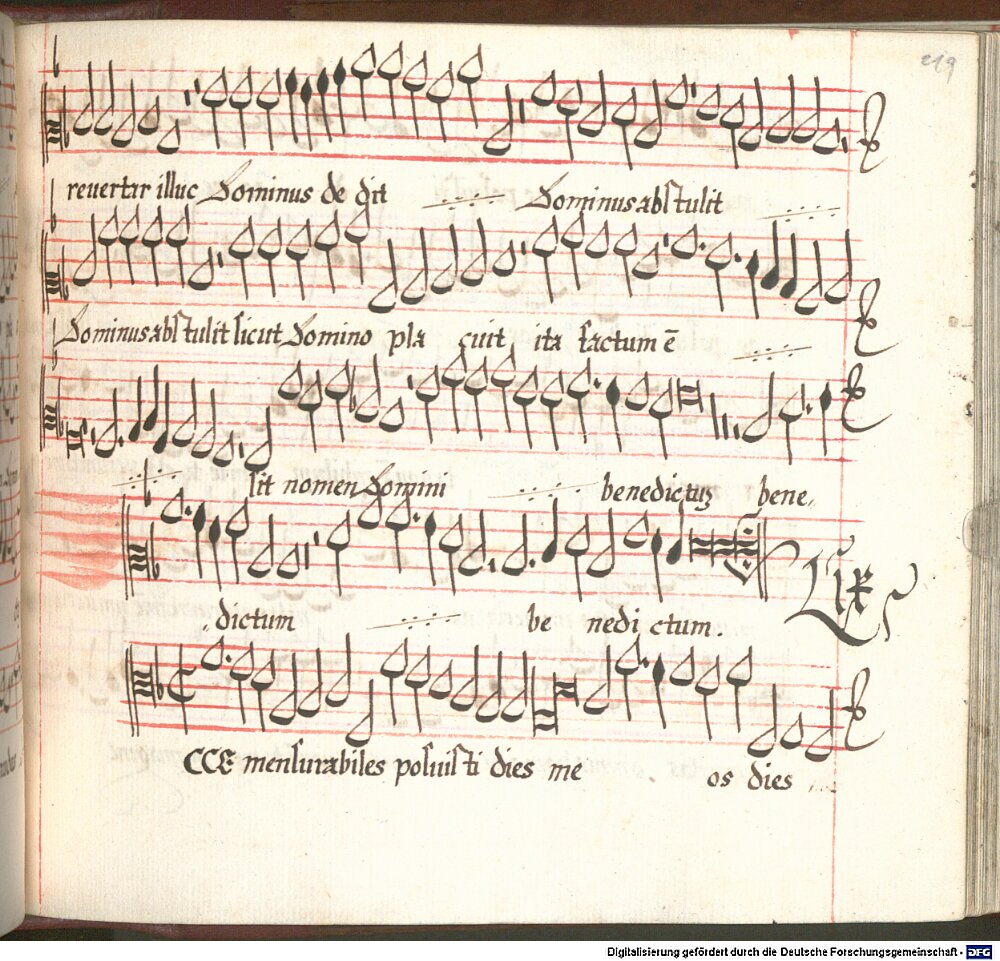 219
revertar illuc Dominus de dit Dominus abstulit
Dominus abstulit sicut Domino pla cuit ita factum ē
sit nomen Domini benedictus bene„
LIX
„dictum be nedi ctum.
CCE mensurabiles posuisti dies me os dies
Digitalisierung gefördert durch die Deutsche Forschungsgemeinschaft - DFG